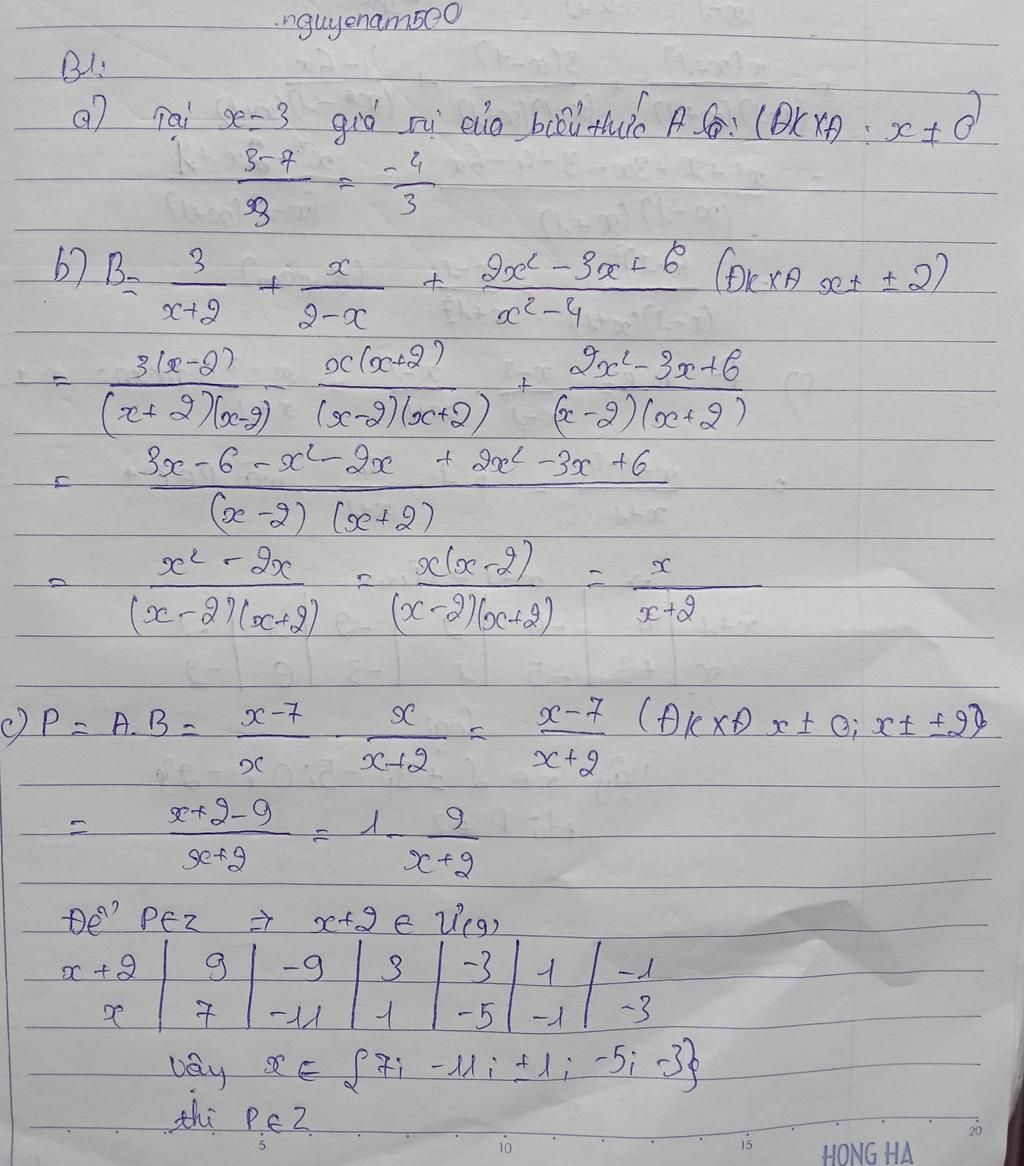 .nguyenam500
B1:
a) Tại x=3 giá trị của biểu thức A là: (ĐKXĐ: x ≠ 0)
3-7/3 = -4/3
b) B= 3/x+2 + x/2-x + 2x² - 3x + 6/x² - 4 (ĐKXĐ x ≠ ±2)
= 3(x-2)/(x+2)(x-2) - x(x+2)/(x-2)(x+2) + 2x² - 3x + 6/(x-2)(x+2)
= 3x - 6 - x² - 2x + 2x² - 3x + 6/(x-2)(x+2)
= x² - 2x/(x-2)(x+2) = x(x-2)/(x-2)(x+2) = x/x+2
c) P = A.B = x-7/x . x/x+2 = x-7/x+2 (ĐKXĐ x ≠ 0; x ≠ ±2)
= x+2-9/x+2 = 1 - 9/x+2
Để P∈Z ⇒ x+2 ∈ Ư(9)
x+2 | 9 | -9 | 3 | -3 | 1 | -1
x | 7 | -11 | 1 | -5 | -1 | -3
Vậy x ∈ {7; -11; ±1; -5; -3}
thì P∈Z
5 10 15 20
HONG HA